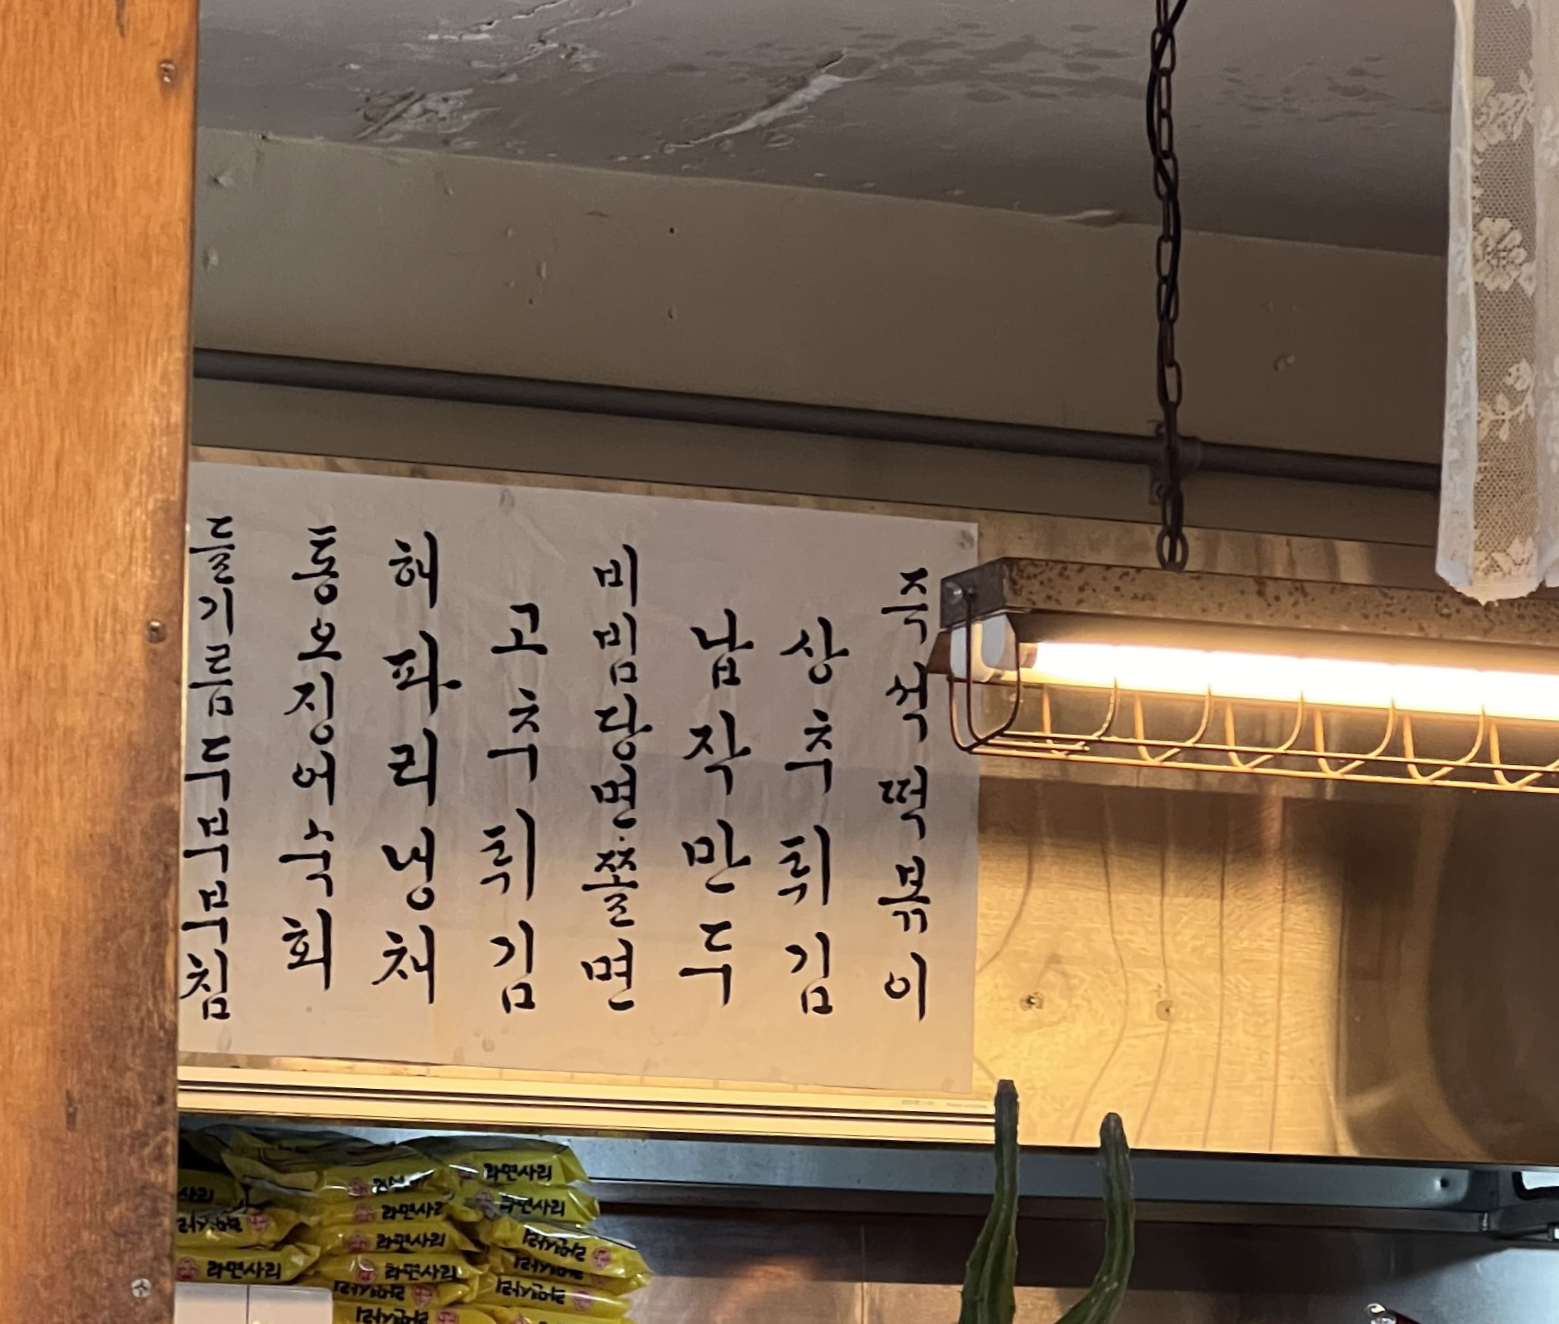 즉석떡볶이
상추튀김
납작만두
비빔당면·쫄면
고추튀김
해파리냉채
통오징어숙회
들기름두부무침
라면사리
라면사리
사리
라면사리
라면사리
라면사리
라면사리
라면사리
라면사리
라면사리